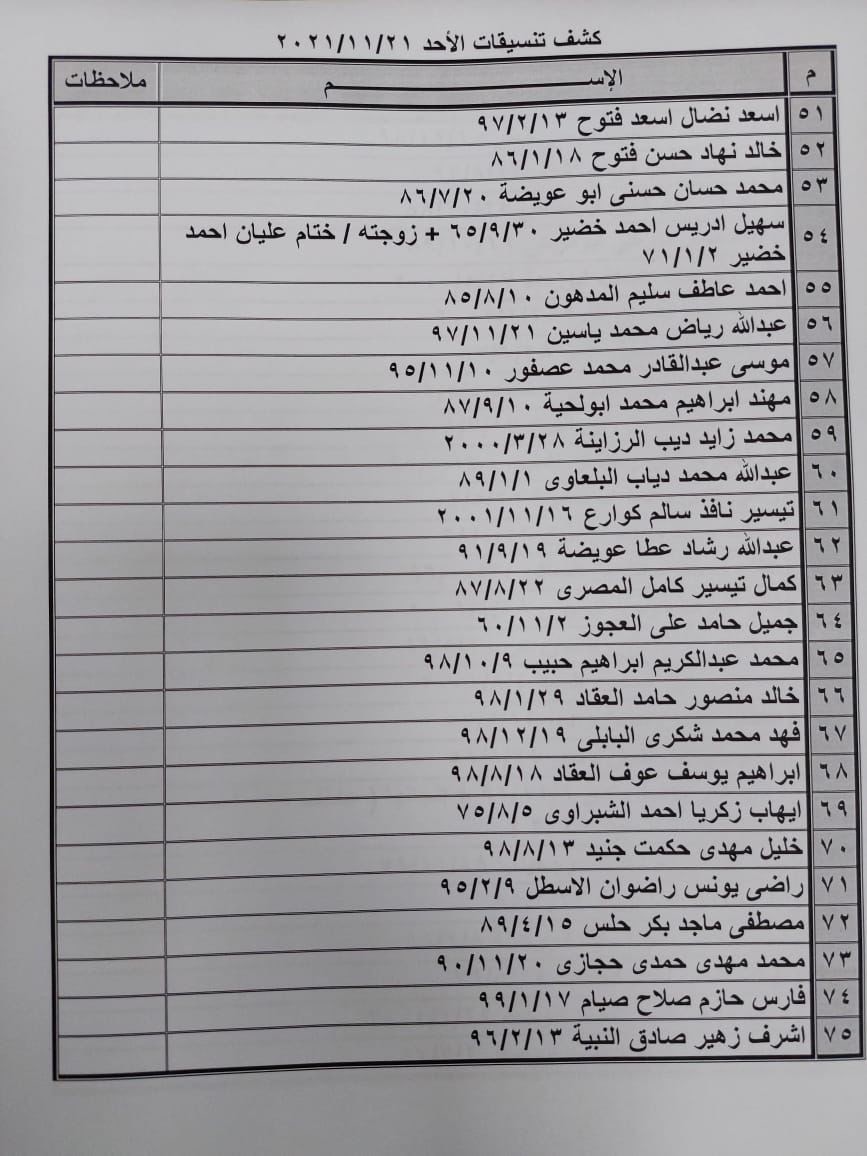 كشف تنسيقات الأحد ٢٠٢١/١١/٢١
م الإســـــــــــم ملاحظات
٥١ اسعد نضال اسعد فتوح ٩٧/٢/١٣
٥٢ خالد نهاد حسن فتوح ٨٦/١/١٨
٥٣ محمد حسان حسنى ابو عويضة ٨٦/٧/٢٠
٥٤ سهيل ادريس احمد خضير ٦٥/٩/٣٠ + زوجته / ختام عليان احمد
خضير ٧١/١/٢
٥٥ احمد عاطف سليم المدهون ٨٥/٨/١٠
٥٦ عبدالله رياض محمد ياسين ٩٧/١١/٢١
٥٧ موسى عبدالقادر محمد عصفور ٩٥/١١/١٠
٥٨ مهند ابراهيم محمد ابولحية ٨٧/٩/١٠
٥٩ محمد زايد ديب الرزاينة ٢٠٠٠/٣/٢٨
٦٠ عبدالله محمد دياب البلعاوى ٨٩/١/١
٦١ تيسير نافذ سالم كوارع ٢٠٠١/١١/١٦
٦٢ عبدالله رشاد عطا عويضة ٩١/٩/١٩
٦٣ كمال تيسير كامل المصرى ٨٧/٨/٢٢
٦٤ جميل حامد على العجوز ٦٠/١١/٢
٦٥ محمد عبدالكريم ابراهيم حبيب ٩٨/١٠/٩
٦٦ خالد منصور حامد العقاد ٩٨/١/٢٩
٦٧ فهد محمد شكرى البابلى ٩٨/١٢/١٩
٦٨ ابراهيم يوسف عوف العقاد ٩٨/٨/١٨
٦٩ ايهاب زكريا احمد الشبراوى ٧٥/٨/٥
٧٠ خليل مهدى حكمت جنيد ٩٨/٨/١٣
٧١ راضى يونس راضوان الاسطل ٩٥/٢/٩
٧٢ مصطفى ماجد بكر حلس ٨٩/٤/١٥
٧٣ محمد مهدى حمدى حجازى ٩٠/١١/٢٠
٧٤ فارس حازم صلاح صيام ٩٩/١/١٧
٧٥ اشرف زهير صادق النبية ٩٦/٢/١٣